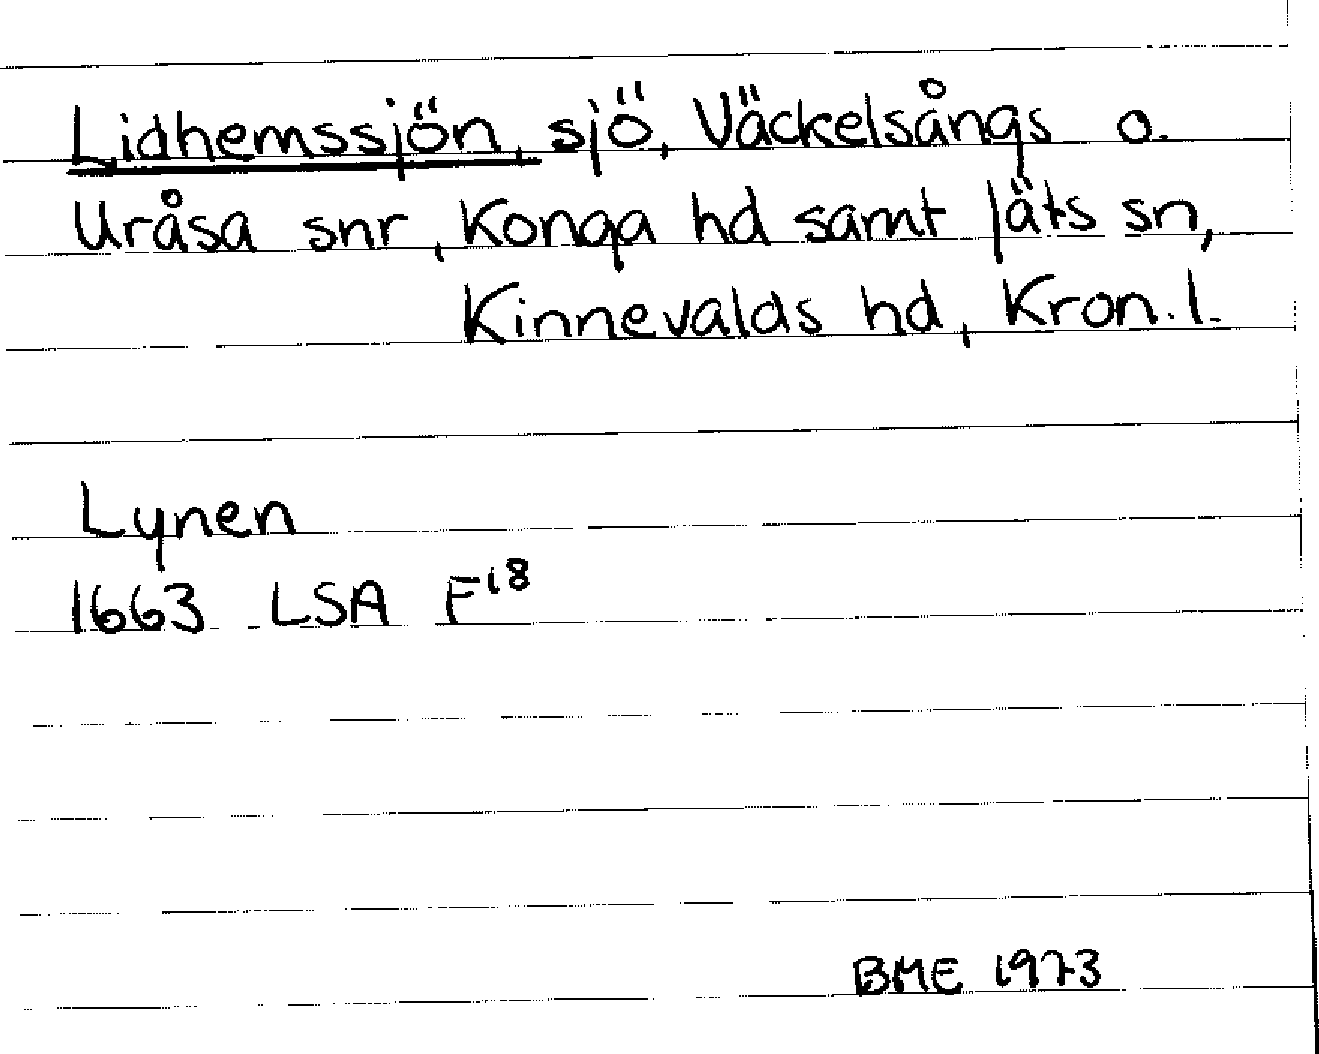 Lidhemssjön, sjö, Väckelsångs o.
Uråsa snr, Konga hd samt Jäts sn,
Kinnevalds hd, Kron.l.
Lynen
1663 LSA F¹8
BME 1973